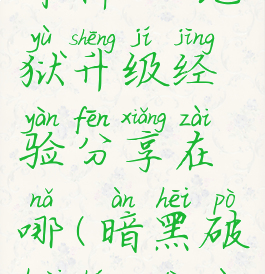 yù shēng jí jīng
狱升级经
yàn fēn xiǎng zài
验分享在
nǎ àn hēi pò
哪(暗黑破